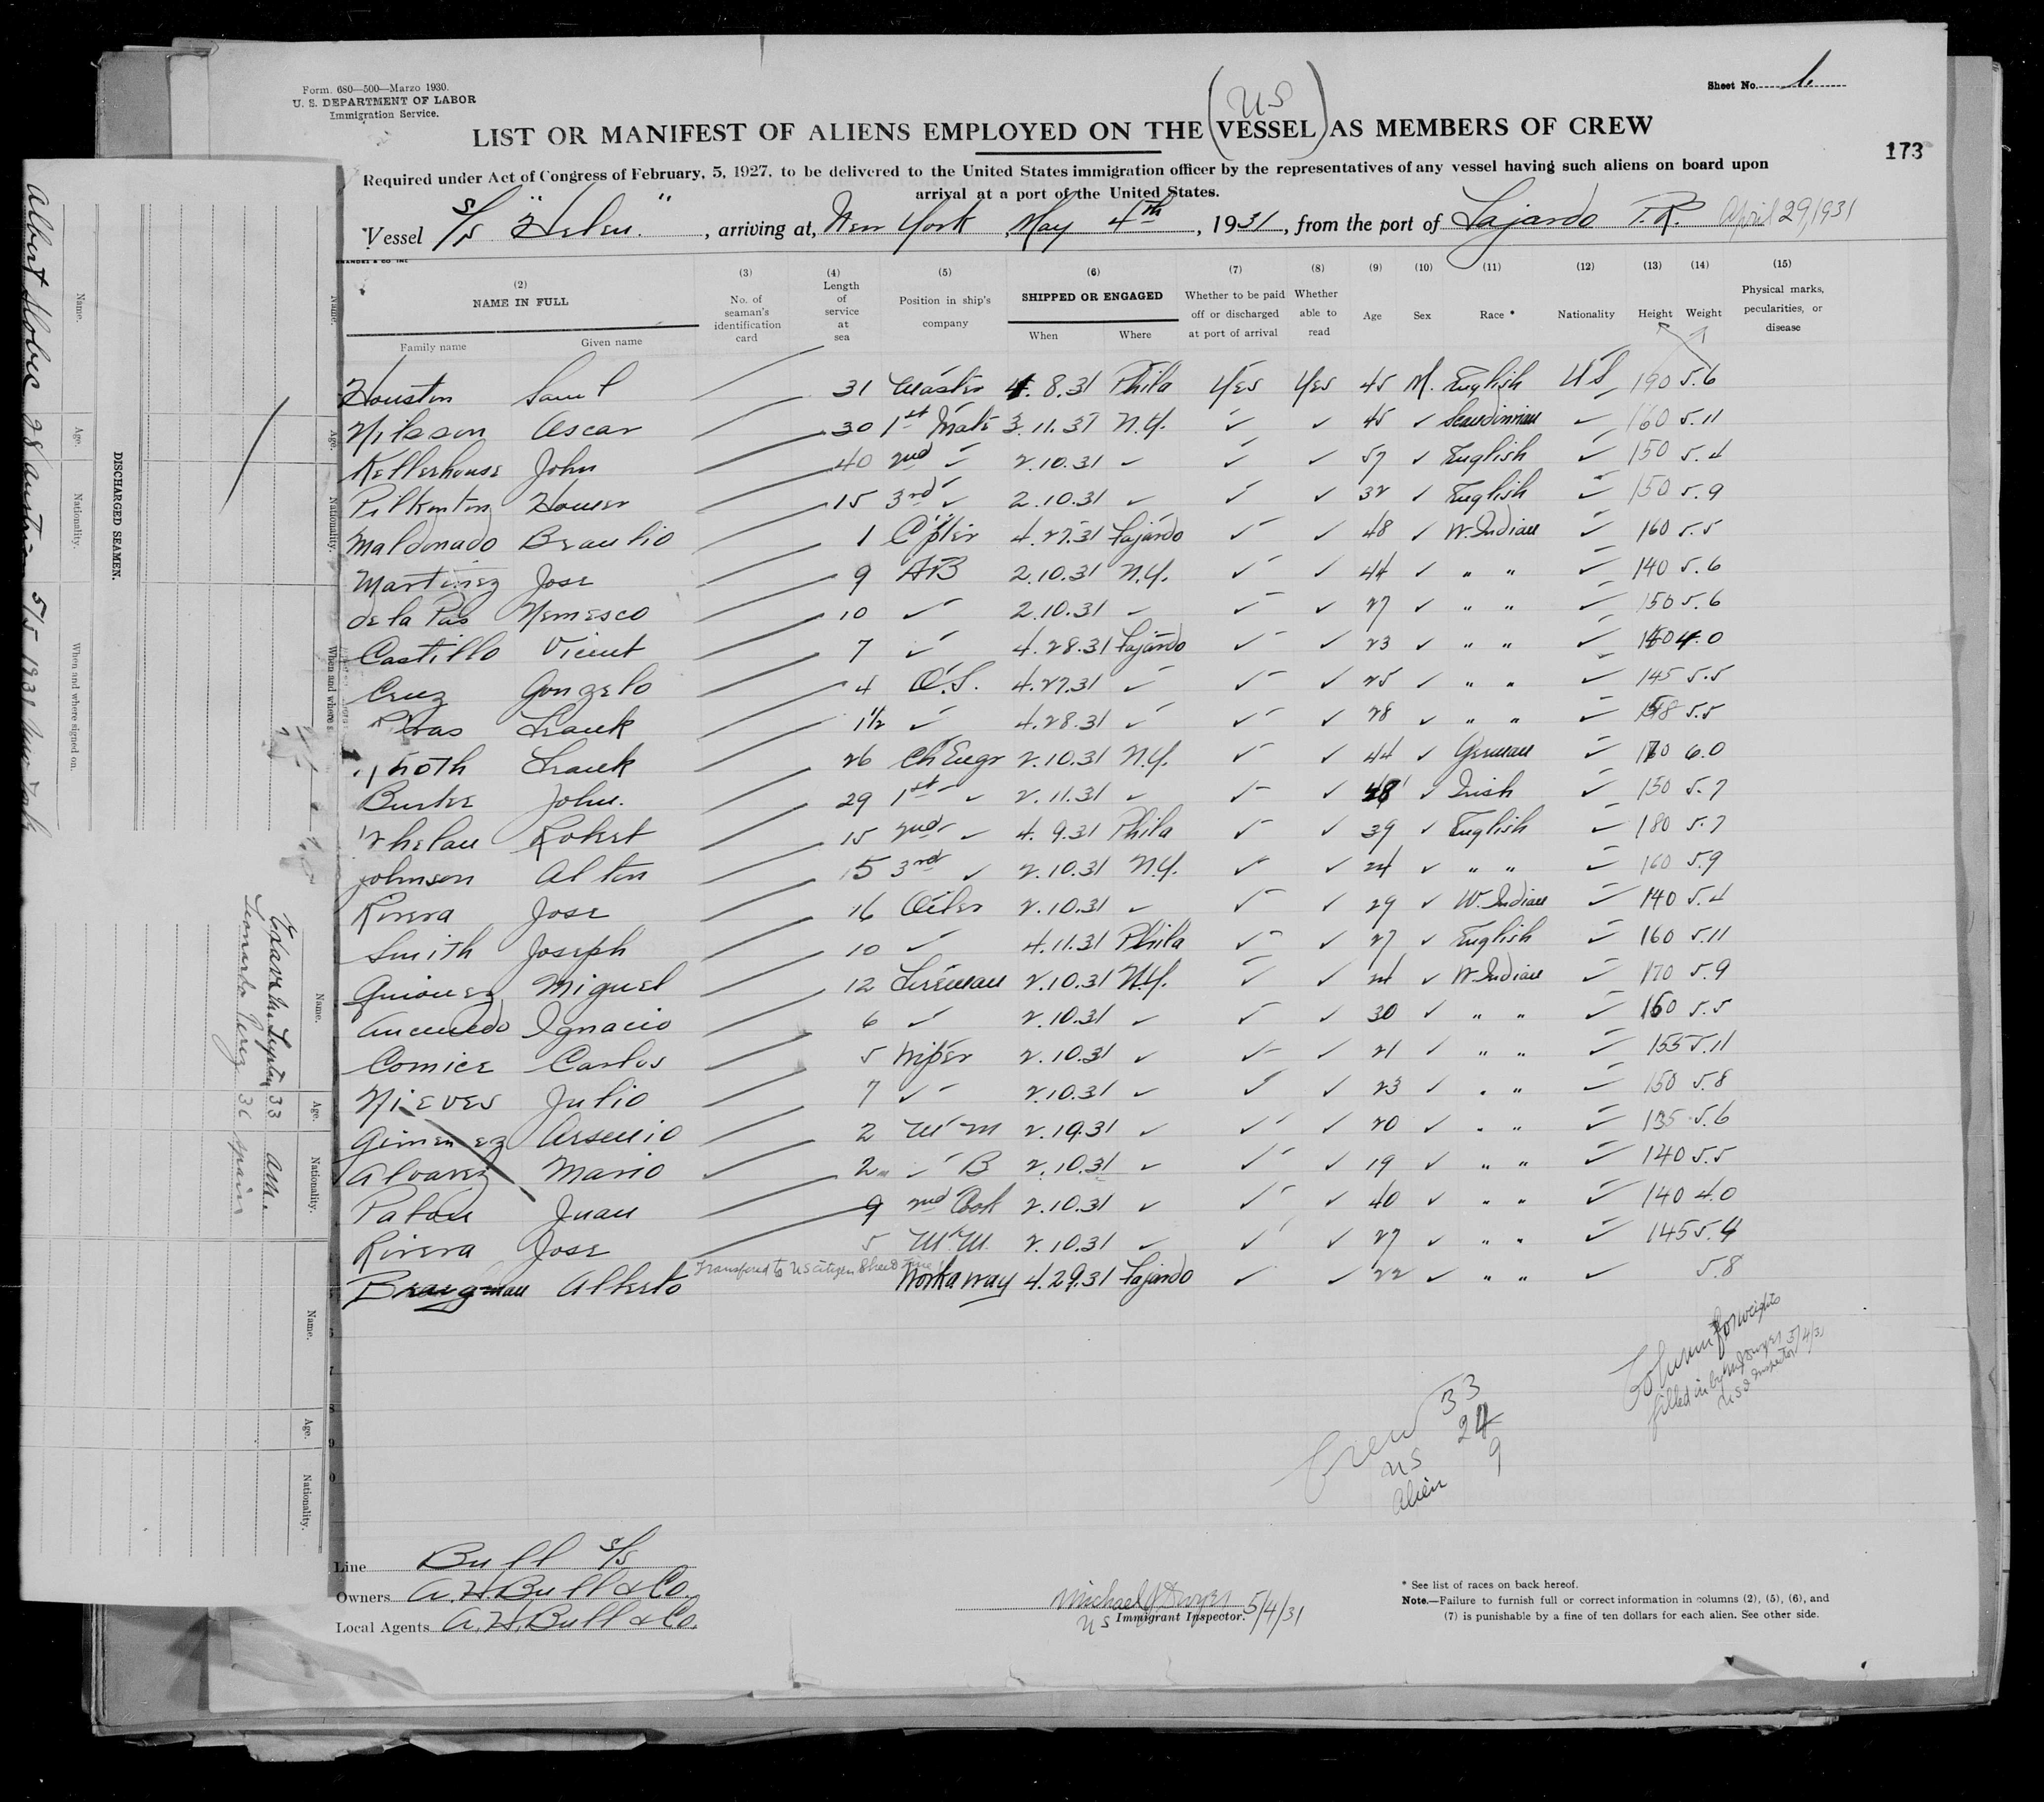 Form. 680—500—Marzo 1930.
U. S. DEPARTMENT OF LABOR
Immigration Service.
Sheet No.
US
LIST OR MANIFEST OF ALIENS EMPLOYED ON THE (VESSEL) AS MEMBERS OF CREW
173
Required under Act of Congress of February, 5, 1927, to be delivered to the United States immigration officer by the representatives of any vessel having such aliens on board upon
arrival at a port of the United States.
Vessel S/S "Helen" , arriving at, New York , May 4th , 1931, from the port of Fajardo P.R. April 29, 1931
(2) (3) (4) (5) (6) (7) (8) (9) (10) (11) (12) (13) (14) (15)
NAME IN FULL
Family name Given name
No. of seaman's identification card
Length of service at sea
Position in ship's company
SHIPPED OR ENGAGED
When Where
Whether to be paid off or discharged at port of arrival
Whether able to read
Age Sex Race * Nationality Height Weight
Physical marks, pecularities, or disease
Houston Saml 31 Master 4.8.31 Phila Yes Yes 45 M. English US 190 5.6
Nilsson Oscar 30 1st Mate 3.11.31 N.Y. ✓ ✓ 45 ✓ ✓ 160 5.11
Kellerhouse John 40 2nd ✓ 2.10.31 ✓ ✓ ✓ 57 ✓ English ✓ 150 5.4
Pilkenton Homer 15 3rd ✓ 2.10.31 ✓ ✓ ✓ 32 ✓ English ✓ 150 5.9
Maldonado Braulio 1 4.27.31 Fajardo ✓ ✓ 48 ✓ W. Indian ✓ 160 5.5
Martinez Jose 9 AB 2.10.31 N.Y. ✓ ✓ 44 ✓ " " ✓ 140 5.6
de la Pas Nemesco 10 ✓ 2.10.31 ✓ ✓ ✓ 27 ✓ " " ✓ 150 5.6
Castillo Vicent 7 ✓ 4.28.31 Fajardo ✓ ✓ 23 ✓ " " ✓ 4.0
Cruz Gonzelo 4 O.S. 4.27.31 ✓ ✓ ✓ 25 ✓ " " ✓ 145 5.5
Frank 1½ ✓ 4.28.31 ✓ ✓ ✓ 28 ✓ " " ✓ 5.5
Frank 26 Ch Engr 2.10.31 N.Y. ✓ ✓ 44 ✓ German ✓ 6.0
Burke John. 29 1st ✓ 2.11.31 ✓ ✓ ✓ 48 ✓ Irish ✓ 150 5.7
Whelan Robert 15 2nd ✓ 4.9.31 Phila ✓ ✓ 39 ✓ English ✓ 180 5.7
Johnson Alton 15 3rd ✓ 2.10.31 N.Y. ✓ ✓ 24 ✓ " " ✓ 160 5.9
Rivera Jose 16 Oiler 2.10.31 ✓ ✓ ✓ 29 ✓ W. Indian ✓ 140 5.4
Smith Joseph 10 ✓ 4.11.31 Phila ✓ ✓ 27 ✓ English ✓ 160 5.11
Miguel 12 Fireman 2.10.31 N.Y. ✓ ✓ 24 ✓ W. Indian ✓ 170 5.9
Ignacio 6 ✓ 2.10.31 ✓ ✓ ✓ 30 ✓ " " ✓ 5.5
Comice Carlos 5 Wiper 2.10.31 ✓ ✓ ✓ 21 ✓ " " ✓ 155 5.11
Nieves Julio 7 ✓ 2.10.31 ✓ ✓ ✓ 23 ✓ " " ✓ 150 5.8
Gimenez Arsenio 2 M M 2.19.31 ✓ ✓ ✓ 20 ✓ " " ✓ 135 5.6
Alvarez Mario 2 ✓ B 2.10.31 ✓ ✓ ✓ 19 ✓ " " ✓ 140 5.5
Juan 9 2nd Cook 2.10.31 ✓ ✓ ✓ 40 ✓ " " ✓ 140 4.0
Rivera Jose 5 M.M. 2.10.31 ✓ ✓ ✓ 27 ✓ " " ✓ 145 5.4
Transfered to US Citizen Sheet
Alberto Workaway 4.29.31 Fajardo ✓ ✓ 22 ✓ " " ✓ 5.8
Column for weights
filled in by 5/4/31
US Inspector
Crew 33
US 24
Alien 9
Line Bull S/S
Owners A.H. Bull & Co.
Local Agents A.H. Bull & Co.
Michael J Dwyer
US Immigrant Inspector. 5/4/31
* See list of races on back hereof.
Note.—Failure to furnish full or correct information in columns (2), (5), (6), and
(7) is punishable by a fine of ten dollars for each alien. See other side.
DISCHARGED SEAMEN.
Name. Age. Nationality. When and where signed on.
Albert 28 Austrian 5/5 1931 New York
Name. Age. Nationality. When and where
Name. Age. Nationality.
33 am.
Leonardo Perez 36 Spain
Name. Age. Nationality.